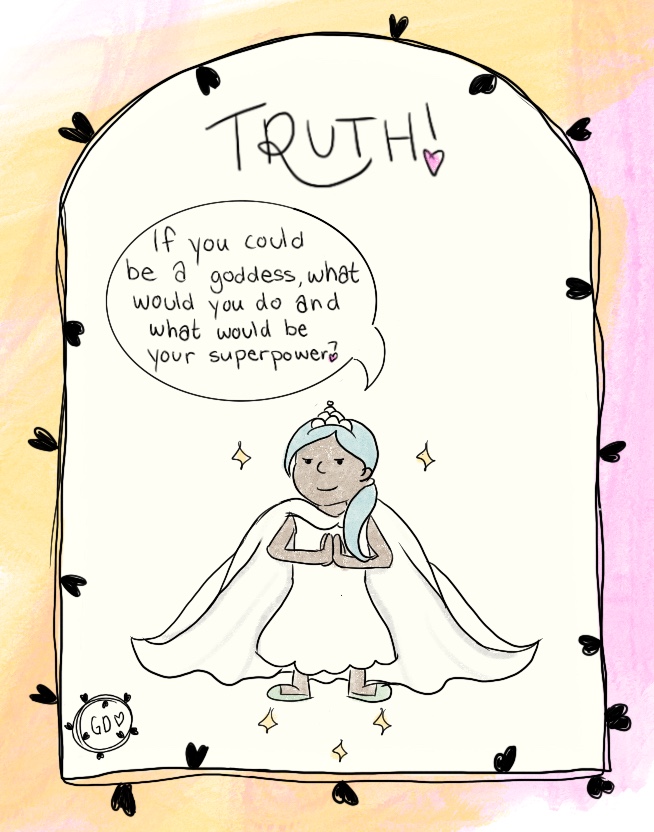 TRUTH!
If you could
be a goddess, what
would you do and
what would be
your superpower?
GD